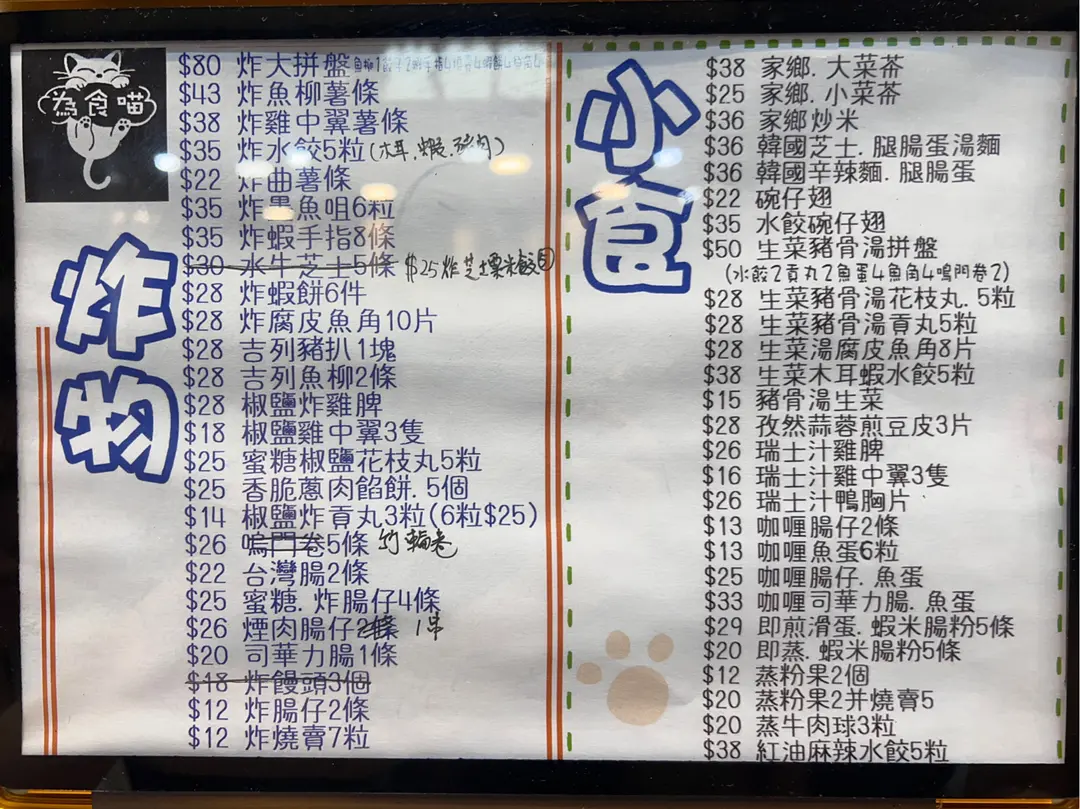 為食喵
炸物
$80 炸大拼盤
$43 炸魚柳薯條
$38 炸雞中翼薯條
$35 炸水餃5粒(木耳.蝦.豬肉)
$22 炸曲薯條
$35 炸墨魚咀6粒
$35 炸蝦手指8條
$30 水牛芝士5條 $25炸芝士粟米餃
$28 炸蝦餅6件
$28 炸腐皮魚角10片
$28 吉列豬扒1塊
$28 吉列魚柳2條
$28 椒鹽炸雞脾
$18 椒鹽雞中翼3隻
$25 蜜糖椒鹽花枝丸5粒
$25 香脆蔥肉餡餅.5個
$14 椒鹽炸貢丸3粒(6粒$25)
$26 鳴門卷5條 竹輪卷
$22 台灣腸2條
$25 蜜糖.炸腸仔4條
$26 煙肉腸仔2條 1串
$20 司華力腸1條
$18 炸饅頭3個
$12 炸腸仔2條
$12 炸燒賣7粒
小食
$38 家鄉.大菜茶
$25 家鄉.小菜茶
$36 家鄉炒米
$36 韓國芝士.腿腸蛋湯麵
$36 韓國辛辣麵.腿腸蛋
$22 碗仔翅
$35 水餃碗仔翅
$50 生菜豬骨湯拼盤
(水餃2貢丸2魚蛋4魚角4鳴門卷2)
$28 生菜豬骨湯花枝丸.5粒
$28 生菜豬骨湯貢丸5粒
$28 生菜湯腐皮魚角8片
$38 生菜木耳蝦水餃5粒
$15 豬骨湯生菜
$28 孜然蒜蓉煎豆皮3片
$26 瑞士汁雞脾
$16 瑞士汁雞中翼3隻
$26 瑞士汁鴨胸片
$13 咖喱腸仔2條
$13 咖喱魚蛋6粒
$25 咖喱腸仔.魚蛋
$33 咖喱司華力腸.魚蛋
$29 即煎滑蛋.蝦米腸粉5條
$20 即蒸.蝦米腸粉5條
$12 蒸粉果2個
$20 蒸粉果2并燒賣5
$20 蒸牛肉球3粒
$38 紅油麻辣水餃5粒